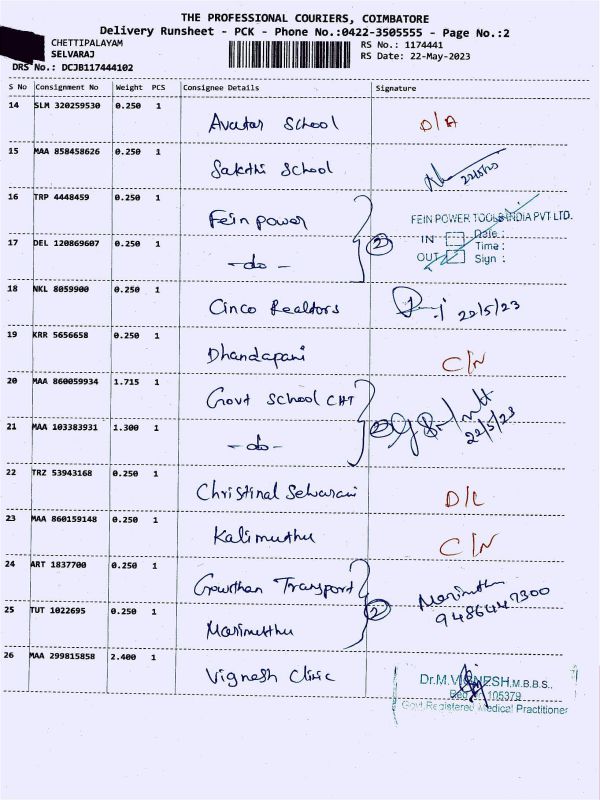 THE PROFESSIONAL COURIERS, COIMBATORE
Delivery Runsheet - PCK - Phone No.:0422-3505555 - Page No.:2
CHETTIPALAYAM
SELVARAJ
DRS No.: DCJB117444102
RS No.: 1174441
RS Date: 22-May-2023
S No Consignment No Weight PCS Consignee Details Signature
14 SLM 320259530 0.250 1 Avatar School D/A
15 MAA 858458626 0.250 1 Sakthi School 22/5/23
16 TRP 4448459 0.250 1 Fein power
17 DEL 120869607 0.250 1 -do-
2
FEIN POWER TOOLS INDIA PVT LTD.
IN Date :
Time :
OUT Sign :
18 NKL 8059900 0.250 1 Cinco Realtors 22/5/23
19 KRR 5656658 0.250 1 Dhandapani C/N
20 MAA 860059934 1.715 1 Govt School CHT
21 MAA 103383931 1.300 1 -do-
2 22/5/23
22 TRZ 53943168 0.250 1 Christinal Selvarani D/L
23 MAA 860159148 0.250 1 Kalimuthu C/N
24 ART 1837700 0.250 1 Gowthan Transport
25 TUT 1022695 0.250 1 Marimuthu
2 Marimuthu
9486447300
26 MAA 299815858 2.400 1 Vignesh Clinic
Dr.M.VIGNESH, M.B.B.S.,
Reg 105379
Govt. Registered Medical Practitioner